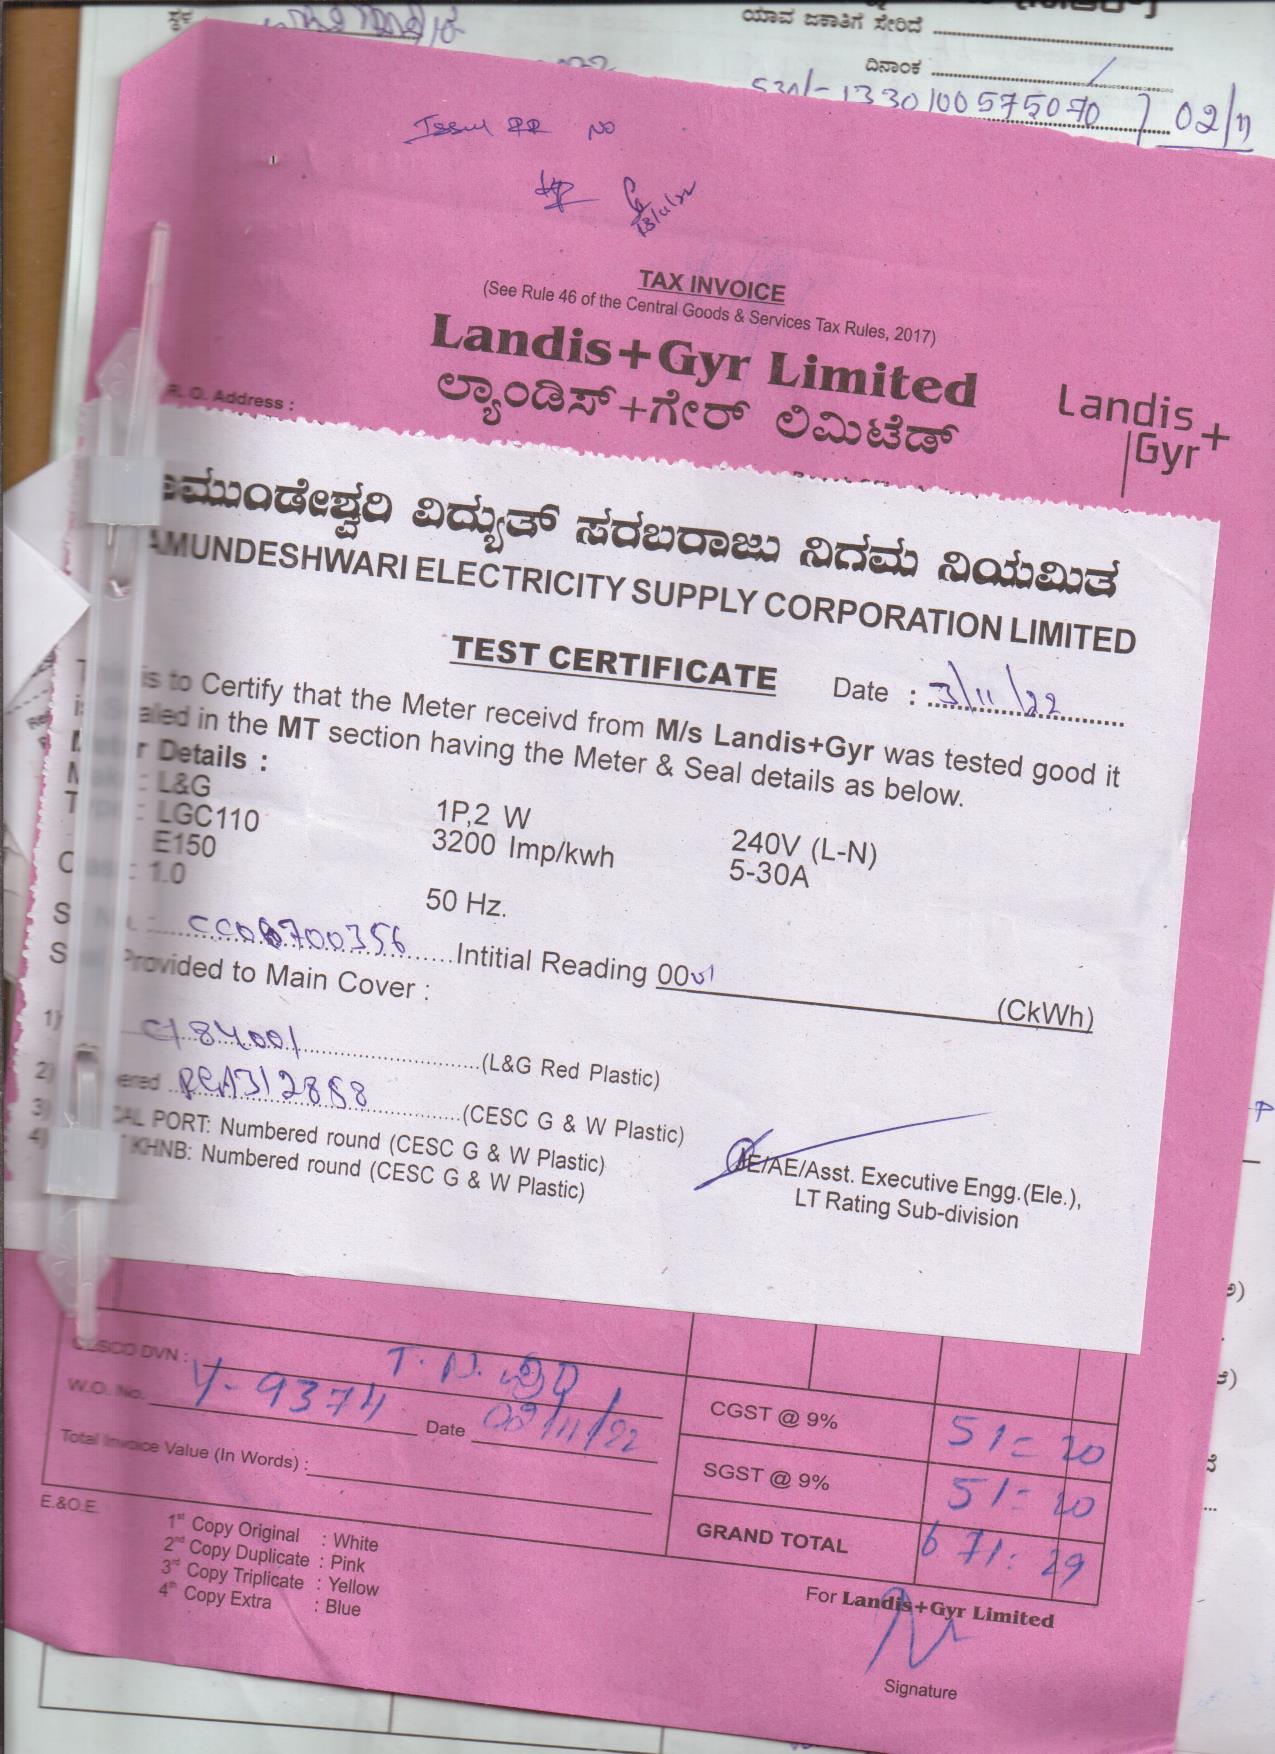 ಸ್ಥಳ
ಯಾವ ಜಕಾತಿಗೆ ಸೇರಿದೆ
ದಿನಾಂಕ
1330100575070 / 02/11
Issue RR No
18/11/22
TAX INVOICE
(See Rule 46 of the Central Goods & Services Tax Rules, 2017)
Landis+Gyr Limited
ಲ್ಯಾಂಡಿಸ್+ಗೇರ್ ಲಿಮಿಟೆಡ್
Landis+
Gyr
R. O. Address :
ಾಮುಂಡೇಶ್ವರಿ ವಿದ್ಯುತ್ ಸರಬರಾಜು ನಿಗಮ ನಿಯಮಿತ
AMUNDESHWARI ELECTRICITY SUPPLY CORPORATION LIMITED
TEST CERTIFICATE
Date : 3/11/22
is to Certify that the Meter receivd from M/s Landis+Gyr was tested good it
is Sealed in the MT section having the Meter & Seal details as below.
Details :
: L&G
: LGC110 1P,2 W 240V (L-N)
E150 3200 Imp/kwh 5-30A
: 1.0
50 Hz.
Intitial Reading 0001 (CkWh)
Provided to Main Cover :
1) C184001 (L&G Red Plastic)
2) (CESC G & W Plastic)
3) CAL PORT: Numbered round (CESC G & W Plastic)
4) KHNB: Numbered round (CESC G & W Plastic)
JE/AE/Asst. Executive Engg.(Ele.),
LT Rating Sub-division
CESCO DVN : T. N. ಪುರ
W.O. No. Y-9374 Date 02/11/22
Total Invoice Value (In Words) :
CGST @ 9% 51=20
SGST @ 9% 51=20
GRAND TOTAL 671=29
E.&O.E.
1st Copy Original : White
2nd Copy Duplicate : Pink
3rd Copy Triplicate : Yellow
4th Copy Extra : Blue
For Landis+Gyr Limited
Signature